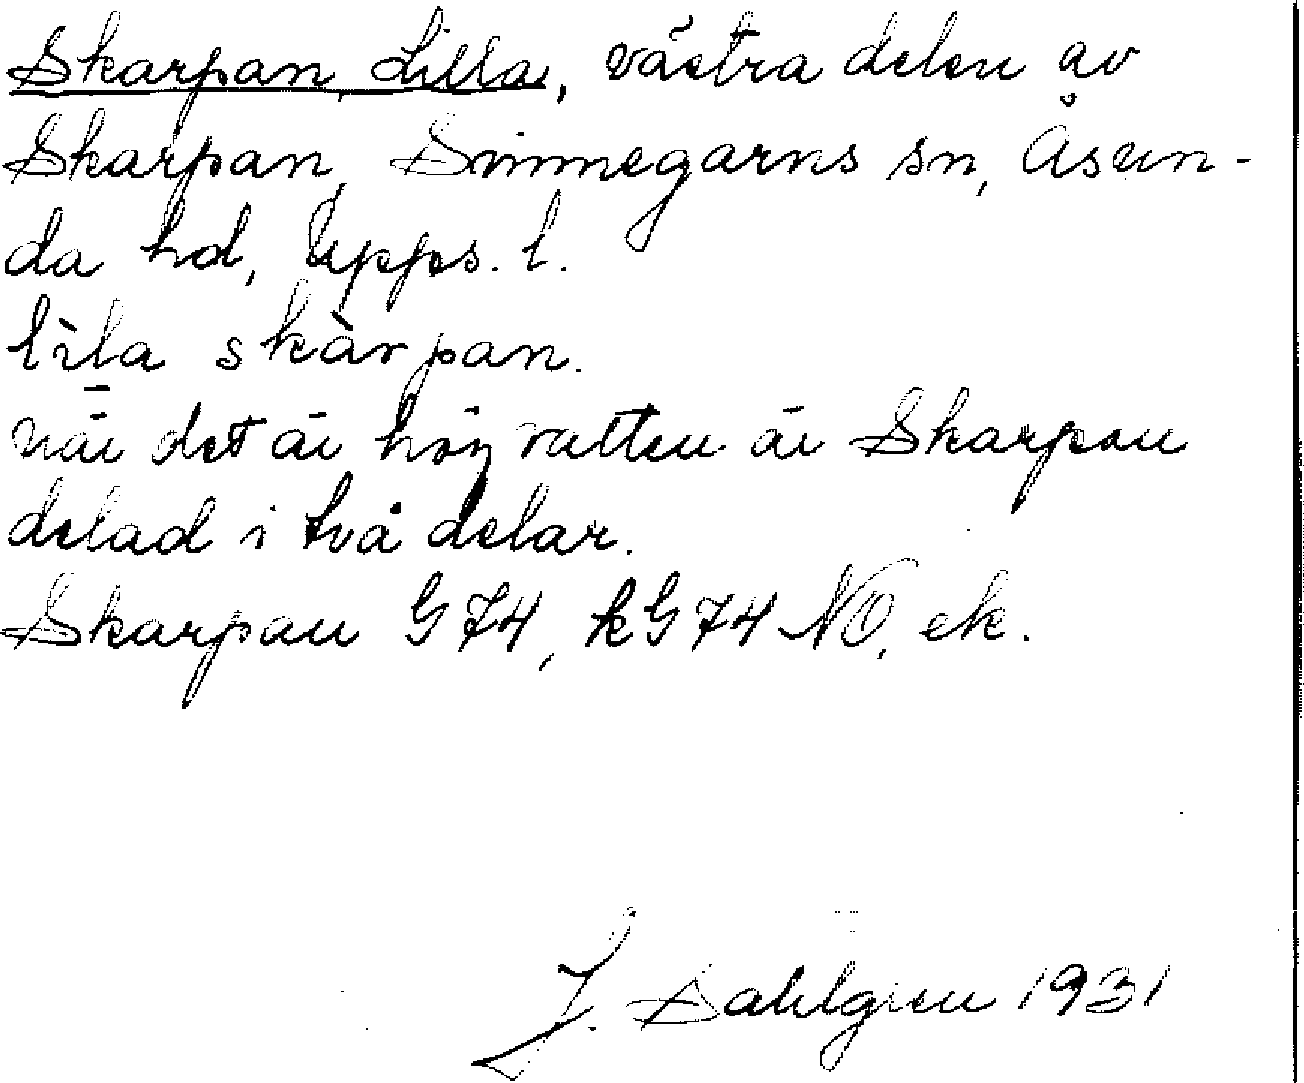 Skarpan, Lilla, västra delen av
Skarpan, Svinnegarns sn, Åsun-
da hd, Upps. l.
lìla skàrpan.
när det är hög vatten är Skarpan
delad i två delar.
Skarpan G 74, kG 74 NO, ek.
J. Dahlgren 1931